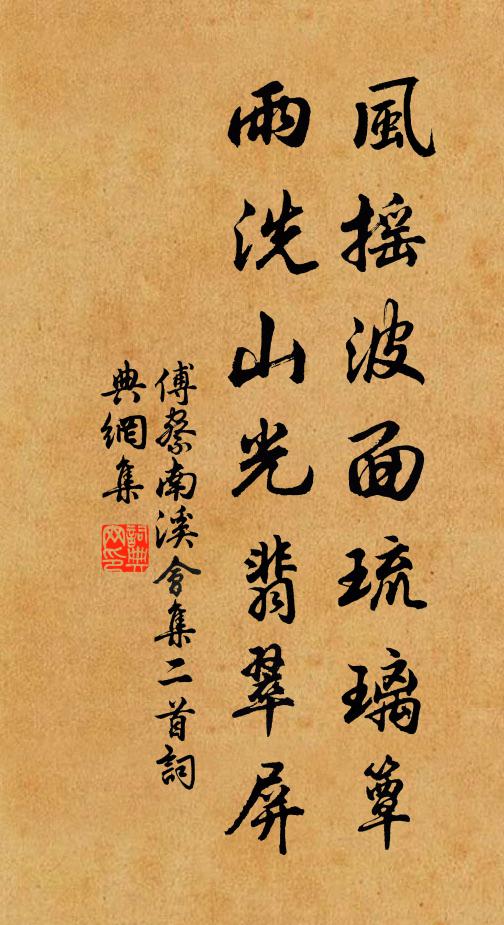 風搖波面琉璃簟
雨洗山光翡翠屏
傅察南溪會集二首詞
典網集
詞典網印